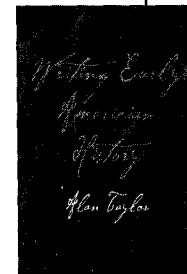 Writing Early
American
History
Alan Taylor